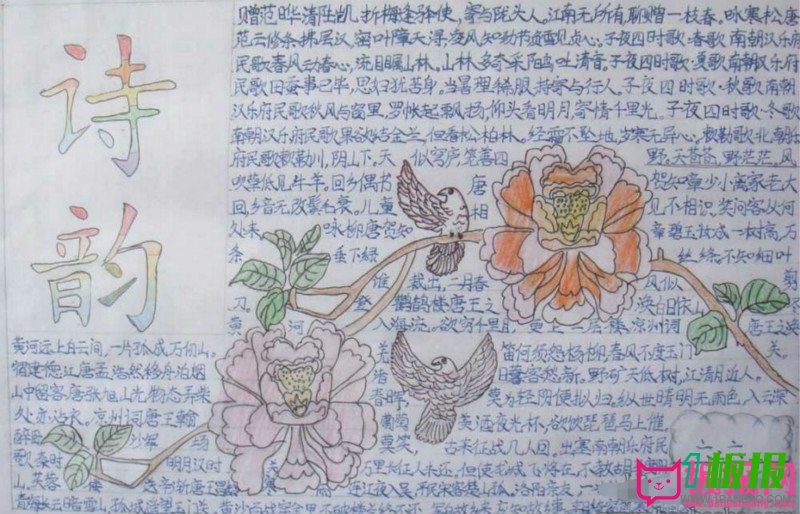 诗韵
赠范晔 折梅逢驿使,寄与陇头人。江南无所有,聊赠一枝春。咏寒松 唐
范云 修条拂层汉,密叶障天浔。凌风知劲节,负雪见贞心。子夜四时歌·春歌 南朝汉乐府
民歌 春风动春心,流目瞩山林。山林多奇采,阳鸟吐清音。子夜四时歌·夏歌 南朝汉乐府
民歌 田蚕事已毕,思妇犹苦身。当暑理絺服,持寄与行人。子夜四时歌·秋歌 南朝
汉乐府民歌 秋风 窗里,罗帐起飘扬。仰头看明月,寄情千里光。子夜四时歌·冬歌
南朝汉乐府民歌 果欲结金兰,但看松柏林。经霜不坠地,岁寒无异心。敕勒歌 北朝乐
府民歌 敕勒川,阴山下。天 似穹庐 四 野。天苍苍,野茫茫,风
吹草低见牛羊。回乡偶书 唐 贺知章 少小离家老大
回,乡音无改鬓毛衰。儿童 相 见不相识,笑问客从何
处来。 咏柳 唐 贺知 章 碧玉妆成一树高,万
条 垂下绿 丝绦。不知细叶
谁 裁出,二月春 风似 剪
刀。 登 鹳鹊楼 唐 王之 涣 白日依山
黄 河 入海流。欲穷千里目,更上一层楼。凉州词 唐 王之涣
黄河远上白云间,一片孤城万仞山。 羌 笛何须怨杨柳,春风不度玉门 关。
宿建德江 唐 孟 浩然 移舟泊烟 渚 日暮客愁新。野旷天低树,江清月近人。
山中留客 唐 张旭 山光物态弄 春晖, 莫为轻阴便拟归。纵使晴明无雨色,入云深
处亦沾衣。凉州词 唐 王翰 葡萄 美酒夜光杯,欲饮琵琶马上催。
醉卧 沙 场 莫笑, 古来征战几人回。出塞 南朝乐府民
歌 秦时 明月汉时 关, 万里长征人未还。但使龙城飞将在,不教胡
山。芙蓉 楼 送辛渐 唐 王昌龄 连江夜入吴,平 楚山孤。洛阳亲友
青海长云暗雪山,孤城遥望玉门关。黄沙百战穿金甲,不破楼兰终不还。
板报